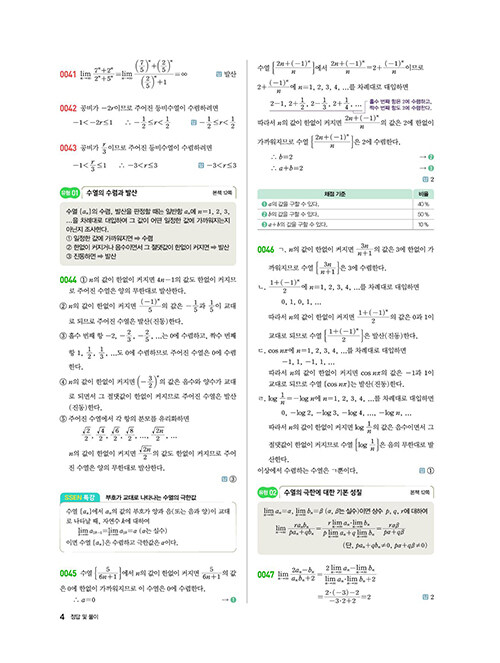 0041 lim n→∞ (7ⁿ+2ⁿ)/(2ⁿ+5ⁿ) = lim n→∞ ((7/5)ⁿ+(2/5)ⁿ)/((2/5)ⁿ+1) = ∞ 답 발산
0042 공비가 −2r이므로 주어진 등비수열이 수렴하려면
−1<−2r≤1 ∴ −1/2≤r<1/2 답 −1/2≤r<1/2
0043 공비가 r/3이므로 주어진 등비수열이 수렴하려면
−1<r/3≤1 ∴ −3<r≤3 답 −3<r≤3
유형 01 수열의 수렴과 발산 본책 10쪽
수열 {aₙ}의 수렴, 발산을 판정할 때는 일반항 aₙ에 n=1, 2, 3,
…을 차례대로 대입하여 그 값이 어떤 일정한 값에 가까워지는지
아닌지 조사한다.
① 일정한 값에 가까워지면 ⇨ 수렴
② 한없이 커지거나 음수이면서 그 절댓값이 한없이 커지면 ⇨ 발산
③ 진동하면 ⇨ 발산
0044 ① n의 값이 한없이 커지면 4n−1의 값도 한없이 커지므
로 주어진 수열은 양의 무한대로 발산한다.
② n의 값이 한없이 커지면 (−1)ⁿ/5의 값은 −1/5과 1/5이 교대
로 되므로 주어진 수열은 발산(진동)한다.
③ 홀수 번째 항 −2, −2/3, −2/5, …는 0에 수렴하고, 짝수 번째
항 1, 1/2, 1/3, …도 0에 수렴하므로 주어진 수열은 0에 수렴
한다.
④ n의 값이 한없이 커지면 (−3/2)ⁿ의 값은 음수와 양수가 교대
로 되면서 그 절댓값이 한없이 커지므로 주어진 수열은 발산
(진동)한다.
⑤ 주어진 수열에서 각 항의 분모를 유리화하면
√2/2, √4/2, √6/2, √8/2, …, √2n/2, …
n의 값이 한없이 커지면 √2n/2의 값도 한없이 커지므로 주어
진 수열은 양의 무한대로 발산한다.
답 ③
SSEN 특강 부호가 교대로 나타나는 수열의 극한값
수열 {aₙ}에서 aₙ의 값의 부호가 양과 음(또는 음과 양)이 교대
로 나타날 때, 자연수 k에 대하여
이면 수열 {aₙ}은 수렴하고 극한값은 α이다.
0045 수열 {5/(6n+1)}에서 n의 값이 한없이 커지면 5/(6n+1)의 값
은 0에 한없이 가까워지므로 이 수열은 0에 수렴한다.
∴ a=0 → ❶
4 정답 및 풀이
수열 {(2n+(−1)ⁿ)/n}에서 (2n+(−1)ⁿ)/n=2+(−1)ⁿ/n이므로
2+(−1)ⁿ/n에 n=1, 2, 3, 4, …를 차례대로 대입하면
2−1, 2+1/2, 2−1/3, 2+1/4, … 홀수 번째 항은 2에 수렴하고,
짝수 번째 항도 2에 수렴한다.
따라서 n의 값이 한없이 커지면 (2n+(−1)ⁿ)/n의 값은 2에 한없이
가까워지므로 수열 {(2n+(−1)ⁿ)/n}은 2에 수렴한다.
∴ b=2 → ❷
∴ a+b=2 → ❸
답 2
채점 기준 비율
❶ a의 값을 구할 수 있다. 40%
❷ b의 값을 구할 수 있다. 50%
❸ a+b의 값을 구할 수 있다. 10%
0046 ㄱ. n의 값이 한없이 커지면 3n/(n+1)의 값은 3에 한없이 가
까워지므로 수열 {3n/(n+1)}은 3에 수렴한다.
ㄴ. (1+(−1)ⁿ)/2에 n=1, 2, 3, 4, …를 차례대로 대입하면
0, 1, 0, 1, …
따라서 n의 값이 한없이 커지면 (1+(−1)ⁿ)/2의 값은 0과 1이
교대로 되므로 수열 {(1+(−1)ⁿ)/2}은 발산(진동)한다.
ㄷ. cos nπ에 n=1, 2, 3, 4, …를 차례대로 대입하면
−1, 1, −1, 1, …
따라서 n의 값이 한없이 커지면 cos nπ의 값은 −1과 1이
교대로 되므로 수열 {cos nπ}는 발산(진동)한다.
ㄹ. log 1/n=−log n에 n=1, 2, 3, 4, …를 차례대로 대입하면
0, −log 2, −log 3, −log 4, …, −log n, …
따라서 n의 값이 한없이 커지면 log 1/n의 값은 음수이면서 그
절댓값이 한없이 커지므로 수열 {log 1/n}은 음의 무한대로 발
산한다.
이상에서 수렴하는 수열은 ㄱ뿐이다. 답 ①
유형 02 수열의 극한에 대한 기본 성질 본책 10쪽
lim n→∞ aₙ=α, lim n→∞ bₙ=β (α, β는 실수)이면 상수 p, q, r에 대하여
lim n→∞ raₙbₙ/(paₙ+qbₙ) = (r lim n→∞ aₙ·lim n→∞ bₙ)/(p lim n→∞ aₙ+q lim n→∞ bₙ) = rαβ/(pα+qβ)
(단, paₙ+qbₙ≠0, pα+qβ≠0)
0047 lim n→∞ (2aₙ−bₙ)/(aₙbₙ+2) = (2 lim n→∞ aₙ−lim n→∞ bₙ)/(lim n→∞ aₙ·lim n→∞ bₙ+2)
=(2·(−3)−2)/(−3·2+2)=2 답 2